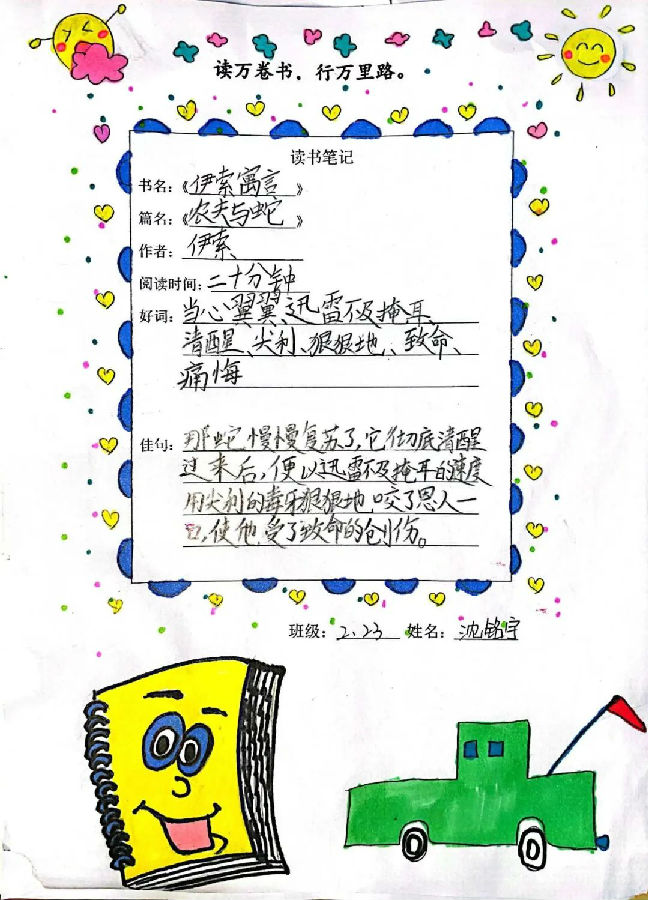 读万卷书，行万里路。
读书笔记
书名：《伊索寓言》
篇名：《农夫与蛇》
作者：伊索
阅读时间：二十分钟
好词：当心翼翼、迅雷不及掩耳、
清醒、尖利、狠狠地、致命、
痛悔
佳句：那蛇慢慢复苏了，它彻底清醒
过来后，便以迅雷不及掩耳的速度
用尖利的毒牙狠狠地咬了恩人一
口，使他受了致命的创伤。
班级：2.23 姓名：沈铭宇